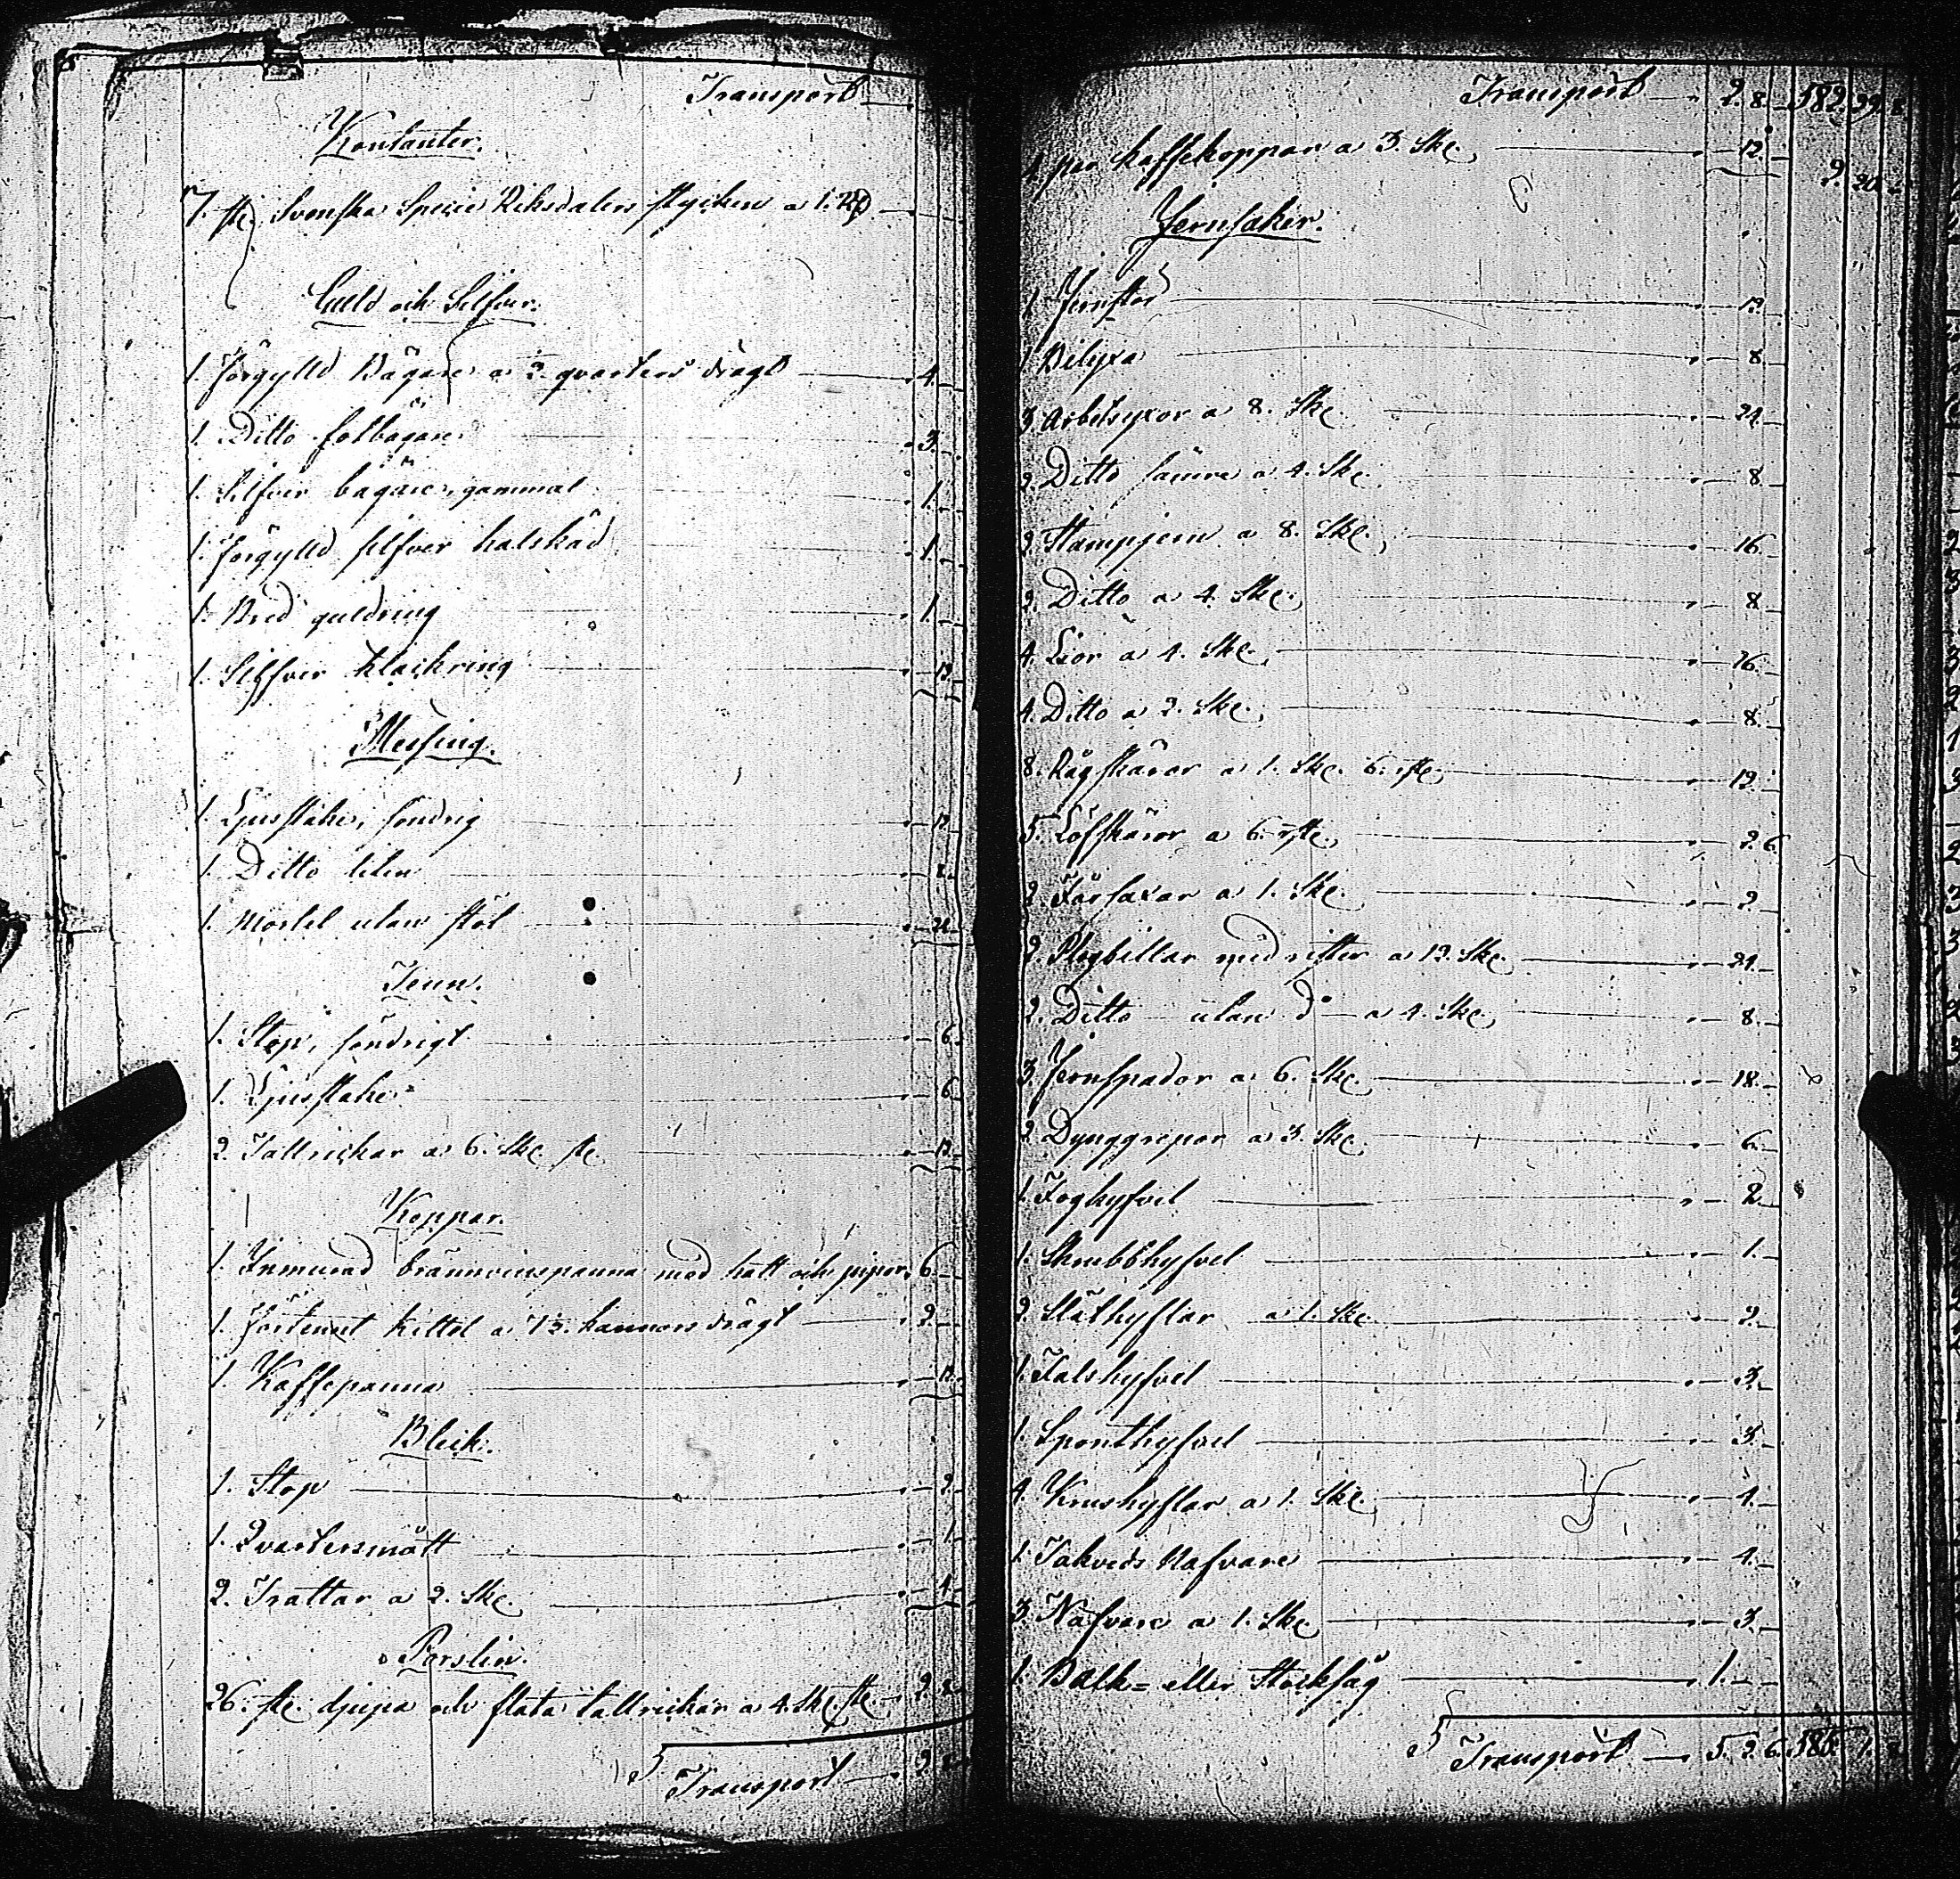 Transport
Kontanter.
7. st. Svenska Specie Riksdalers stycken a 1. Rd
Guld och Silfver.
1. förgylld Bägare a 2 qvarters drägt 4.
1. Ditto fotbägare 3.
1. Silfver bägare, gammal 1.
1. förgylld silfver halskäd 1.
1. Bred guldring 1.
1. Silfver klackring 12.
Messing.
1. Ljusstake, söndrig 12.
1. Ditto liten
1. Mortel utan stöt 24.
Tenn.
1. Stop, söndrigt 6.
1. Ljusstake 6.
2. Tallrickar a 6. Sk. st. 12.
Koppar.
1. Inmurad brännvinspanna med hatt och pipor, 6.
1. förtennt kittel a 1½ kannors drägt 2.
1. Kaffepanna 12.
Bleck.
1. Stop 2.
1. Qvartersmått 1.
2. Trattar a 2. Sk. 4.
Porslin.
26. st. djupa och flata tallrickar a 4. Sk. st. 2. 8.
Transport 2. 8.
Transport 2. 8. 582. 29. 8.
4 par kaffekoppar a 3. Sk. 12. 2. 20.
Jernsaker.
1 Jernstör 12.
1 Bilyxa 8.
3 Arbetsyxor a 8. Sk. 24.
2. Ditto sämre a 4. Sk. 8.
2. Stampjern a 8. Sk. 16.
2. Ditto a 4. Sk. 8.
4. Lior a 4. Sk. 16.
4. Ditto a 2. Sk. 8.
8. Rågskäror a 1. Sk. 6. rst. 12.
5. Löfskäror a 6. rst. 2. 6.
2 Fårsaxar a 1. Sk. 2.
2. Plogbillar med rister a 12. Sk. 24.
2. Ditto utan d:o a 4. Sk. 8.
3. Jernspador a 6. Sk. 18.
2 Dynggrepar a 3. Sk. 6.
1. Foghyfvel 2.
1. Skrubbhyfvel 1.
2. Släthyflar a 1. Sk. 2.
1. Falshyfvel 3.
1. Sponthyfvel 3.
4. Krushyflar a 1. Sk. 4.
1. Takveds Nafvare 4.
3. Nafvare a 1. Sk. 3.
1. Balk- eller Stocksåg 1.
Transport 5. 2. 6. 585. 1. 8.